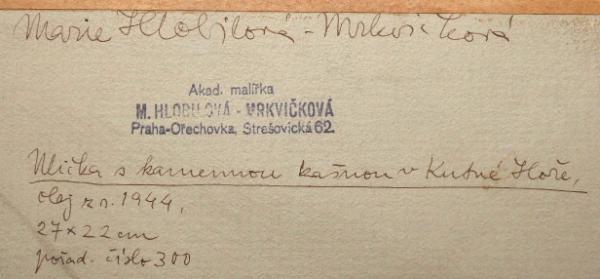 Marie Hlobilová-Mrkvičková
Akad. malířka
M. HLOBILOVÁ - MRKVIČKOVÁ
Praha-Ořechovka, Střešovická 62.
Ulička s kamennou kašnou v Kutné Hoře,
olej z r. 1944,
27 × 22 cm
pořad. číslo 300